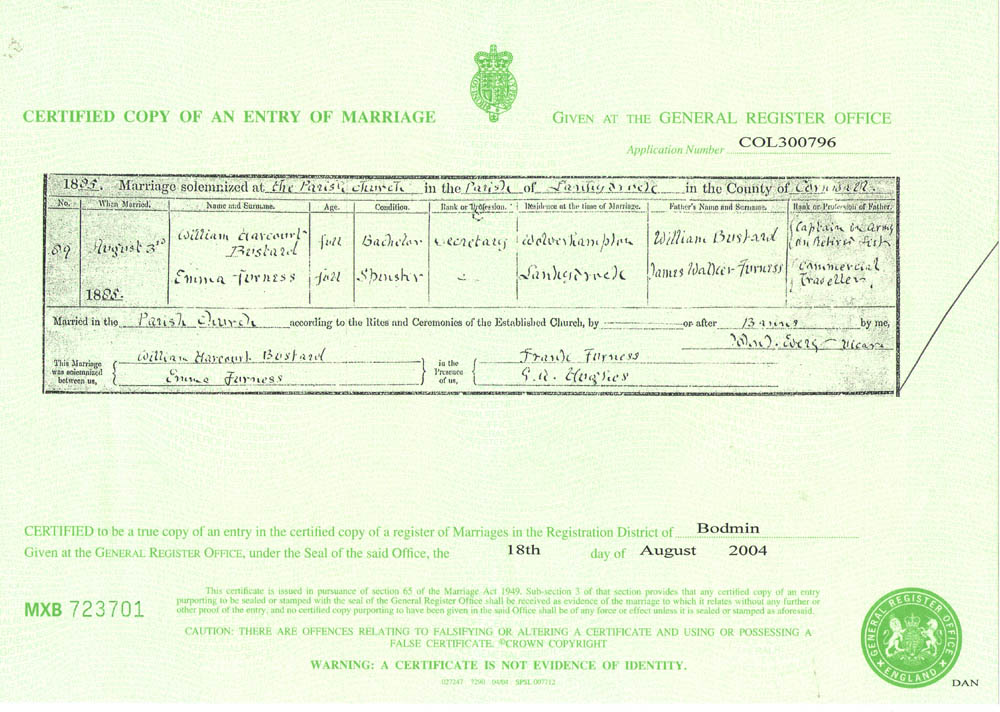 CERTIFIED COPY OF AN ENTRY OF MARRIAGE
GIVEN AT THE GENERAL REGISTER OFFICE
Application Number COL300796
1895. Marriage solemnized at the Parish Church in the Parish of in the County of Cornwall.
No. When Married. Name and Surname. Age. Condition. Rank or Profession. Residence at the time of Marriage. Father's Name and Surname. Rank or Profession of Father.
89 August 3rd 1895. William Harcourt Bustard full Bachelor Secretary Wolverhampton William Bustard Captain in army on Retired
Emma Furness full Spinster – James Walker Furness Commercial Traveller
Married in the Parish Church according to the Rites and Ceremonies of the Established Church, by or after Banns by me,
Vicar
This Marriage was solemnized between us, William Harcourt Bustard
Emma Furness
in the Presence of us, Frank Furness
Hughes
CERTIFIED to be a true copy of an entry in the certified copy of a register of Marriages in the Registration District of Bodmin
Given at the GENERAL REGISTER OFFICE, under the Seal of the said Office, the 18th day of August 2004
MXB 723701
This certificate is issued in pursuance of section 65 of the Marriage Act 1949. Sub-section 3 of that section provides that any certified copy of an entry
purporting to be sealed or stamped with the seal of the General Register Office shall be received as evidence of the marriage to which it relates without any further or
other proof of the entry, and no certified copy purporting to have been given in the said Office shall be of any force or effect unless it is sealed or stamped as aforesaid.
CAUTION: THERE ARE OFFENCES RELATING TO FALSIFYING OR ALTERING A CERTIFICATE AND USING OR POSSESSING A
FALSE CERTIFICATE. ©CROWN COPYRIGHT
WARNING: A CERTIFICATE IS NOT EVIDENCE OF IDENTITY.
027247 7290 04/04 SPSL 007712
GENERAL REGISTER OFFICE
ENGLAND
DAN